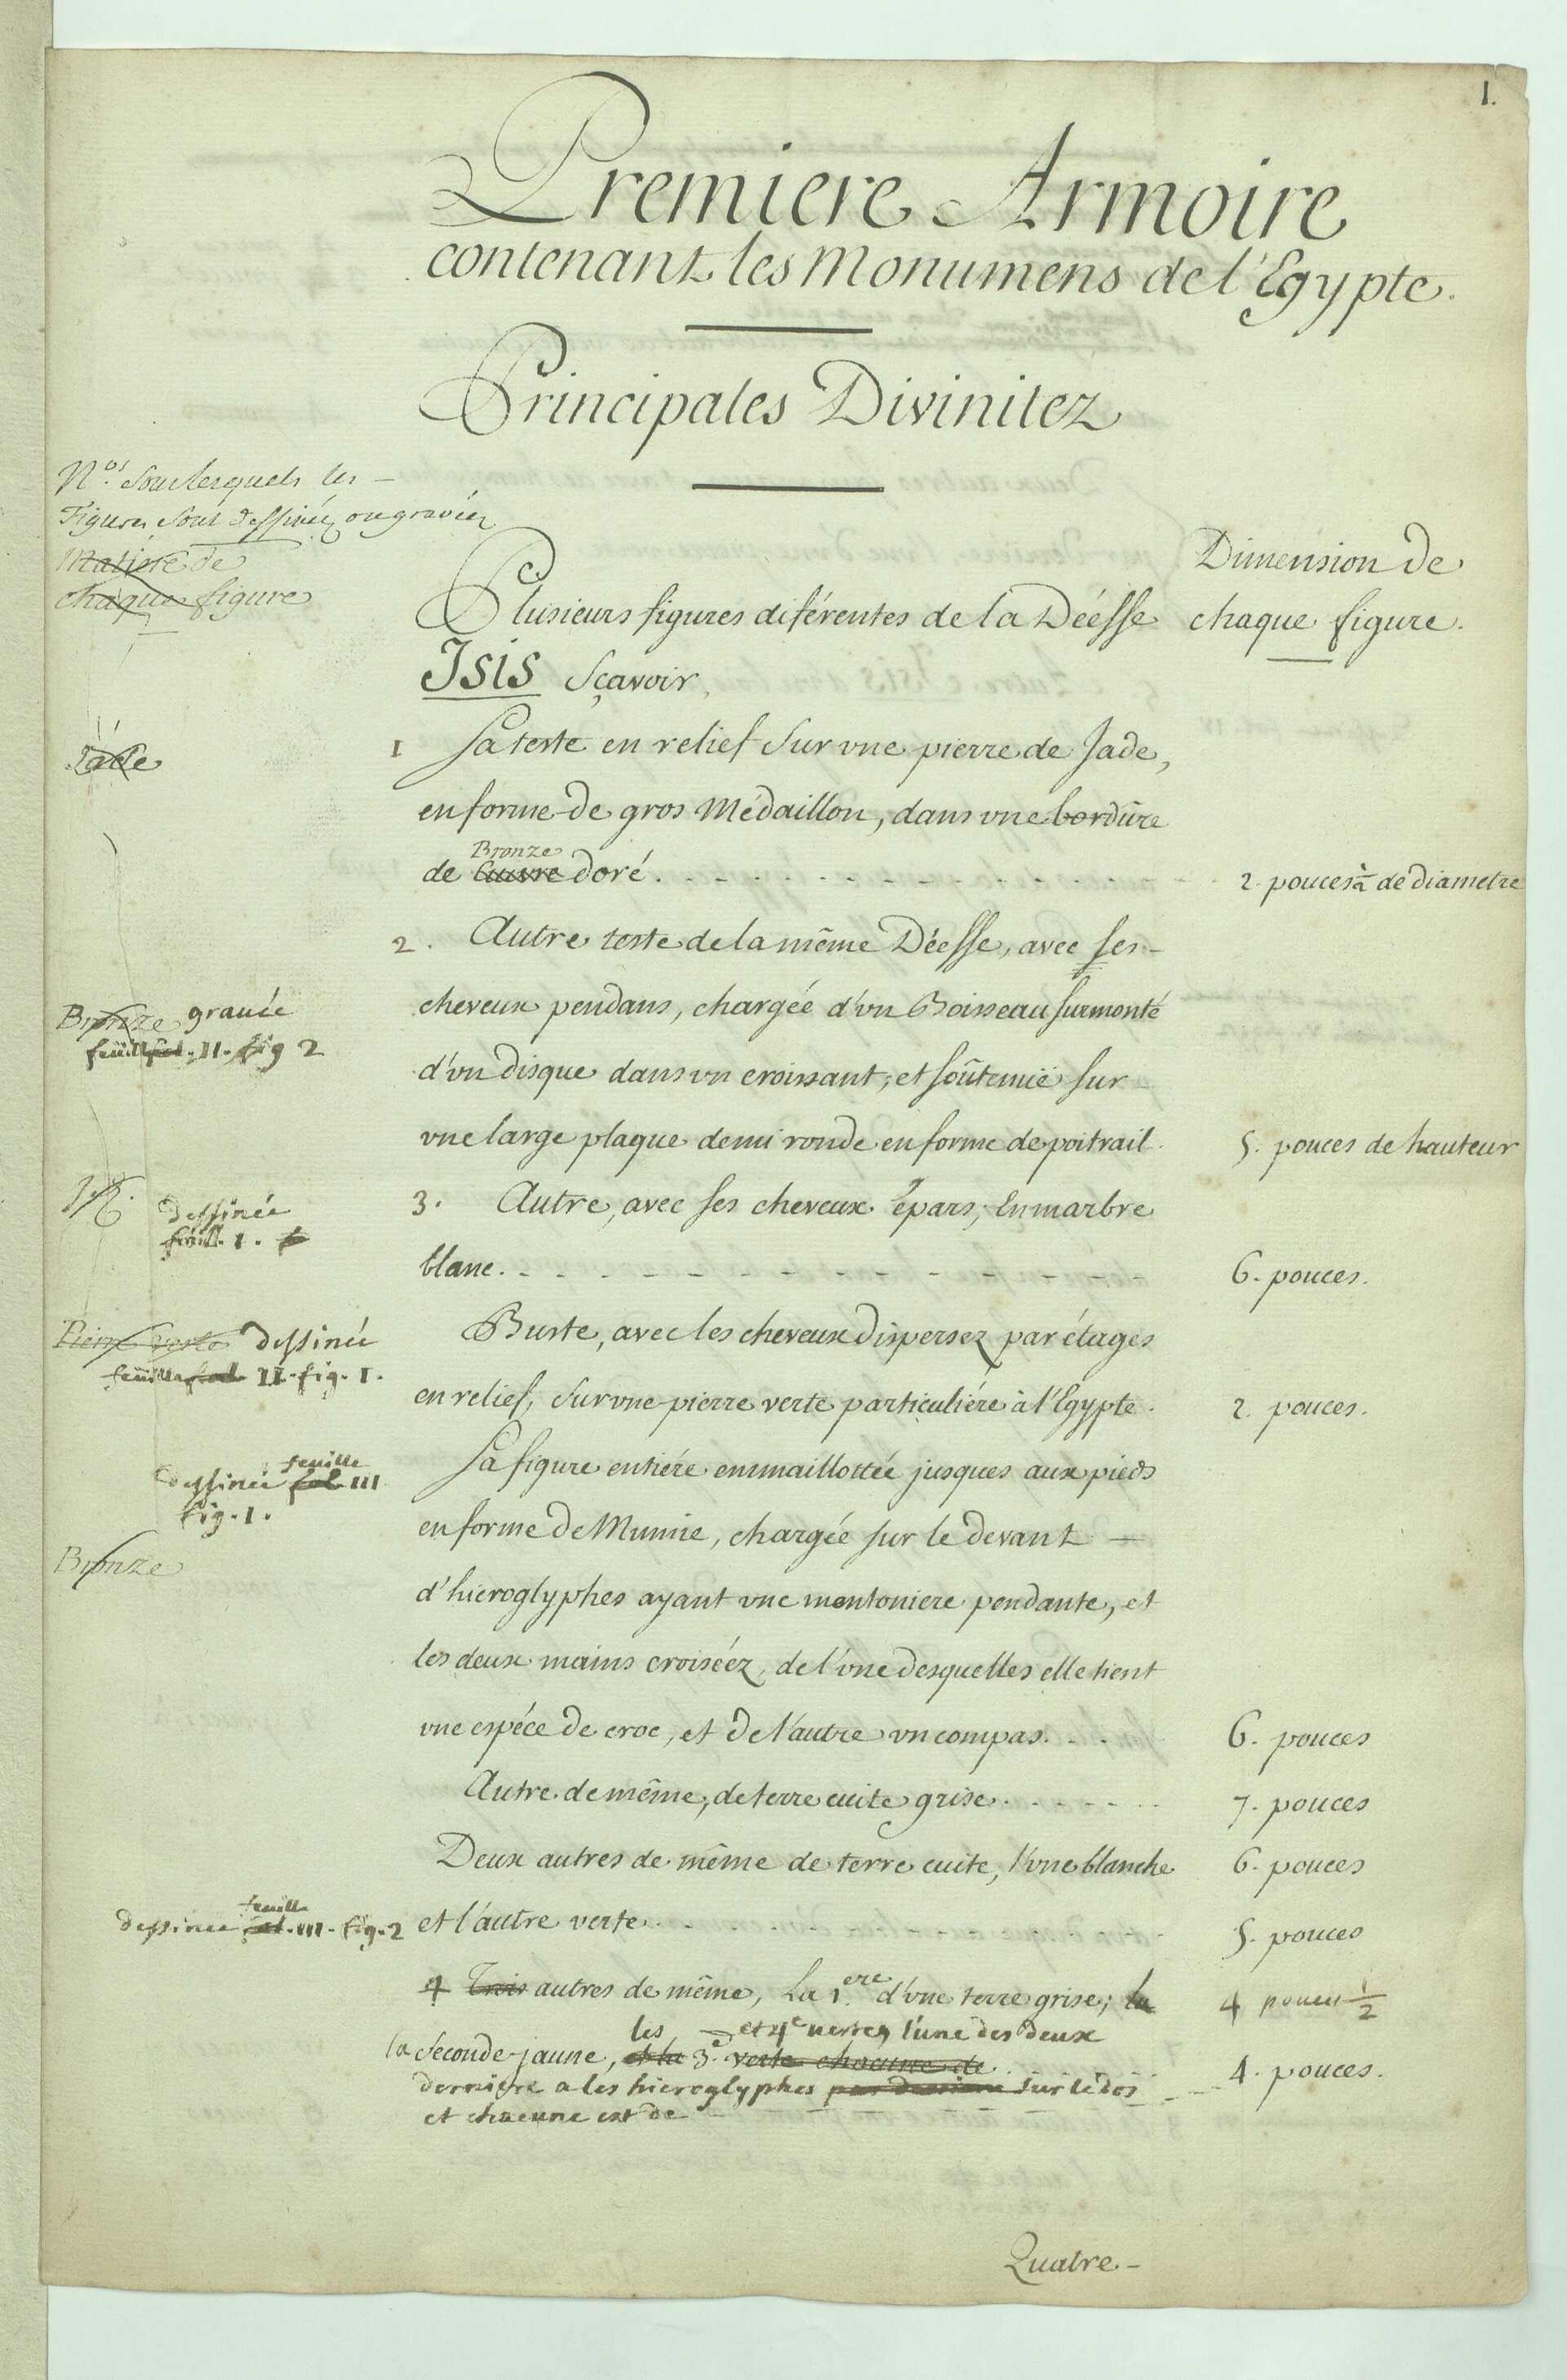 1.
Premiere Armoire
contenant les Monumens de l'Egypte.
Principales Divinitez
Nos. Sous lesquels les
Figures Sont dessinées ou gravées
Matiere de
chaque figure
Dimension de
chaque figure.
Plusieurs figures diférentes de la Déesse
Isis Sçavoir,
Jade
1 Sa teste en relief Sur vne pierre de Jade,
en forme de gros Médaillon, dans vne bordure
Bronze
de Cuivre doré. 2. pouces ½ de diametre
2. Autre teste de la même Déesse, avec ses
Bronze gravée
cheveux pendans, chargée d'vn Boisseau surmonté
feuille fol. II. fig 2
d'vn disque dans vn croissant; et soûtenuë sur
vne large plaque demi ronde en forme de poitrail. 5. pouces de hauteur
dessinée
feuill. 1.
3. Autre, avec ses cheveux épars; En marbre
blanc. 6. pouces.
Pierre verte dessinée
feuille fol. II. fig. 1.
Buste, avec les cheveux dispersez par étages
en relief, Sur vne pierre verte particuliére à l'Egypte. 2. pouces.
feuille
dessinée fol. III
fig. 1.
Sa figure entiére emmaillottée jusques aux pieds
en forme de Mumie, chargée sur le devant
Bronze
d'hieroglyphes ayant vne mentoniere pendante, et
les deux mains croiséez, de l'vne desquelles elle tient
vne espéce de croc, et de l'autre vn compas. 6. pouces
Autre de même, de terre cuite grise. 7. pouces
Deux autres de même de terre cuite, l'vne blanche 6. pouces
feuille
dessinée fol. III. fig. 2
et l'autre verte. 5. pouces
4 Trois autres de même, La 1.ere d'vne terre grise; la 4 pouces ½
les et 4e vertes, l'une des deux
la Seconde jaune, et la 3.e verte chacune de 4. pouces.
derniere a les hieroglyphes par derriere sur le dos
et chacune est de
Quatre